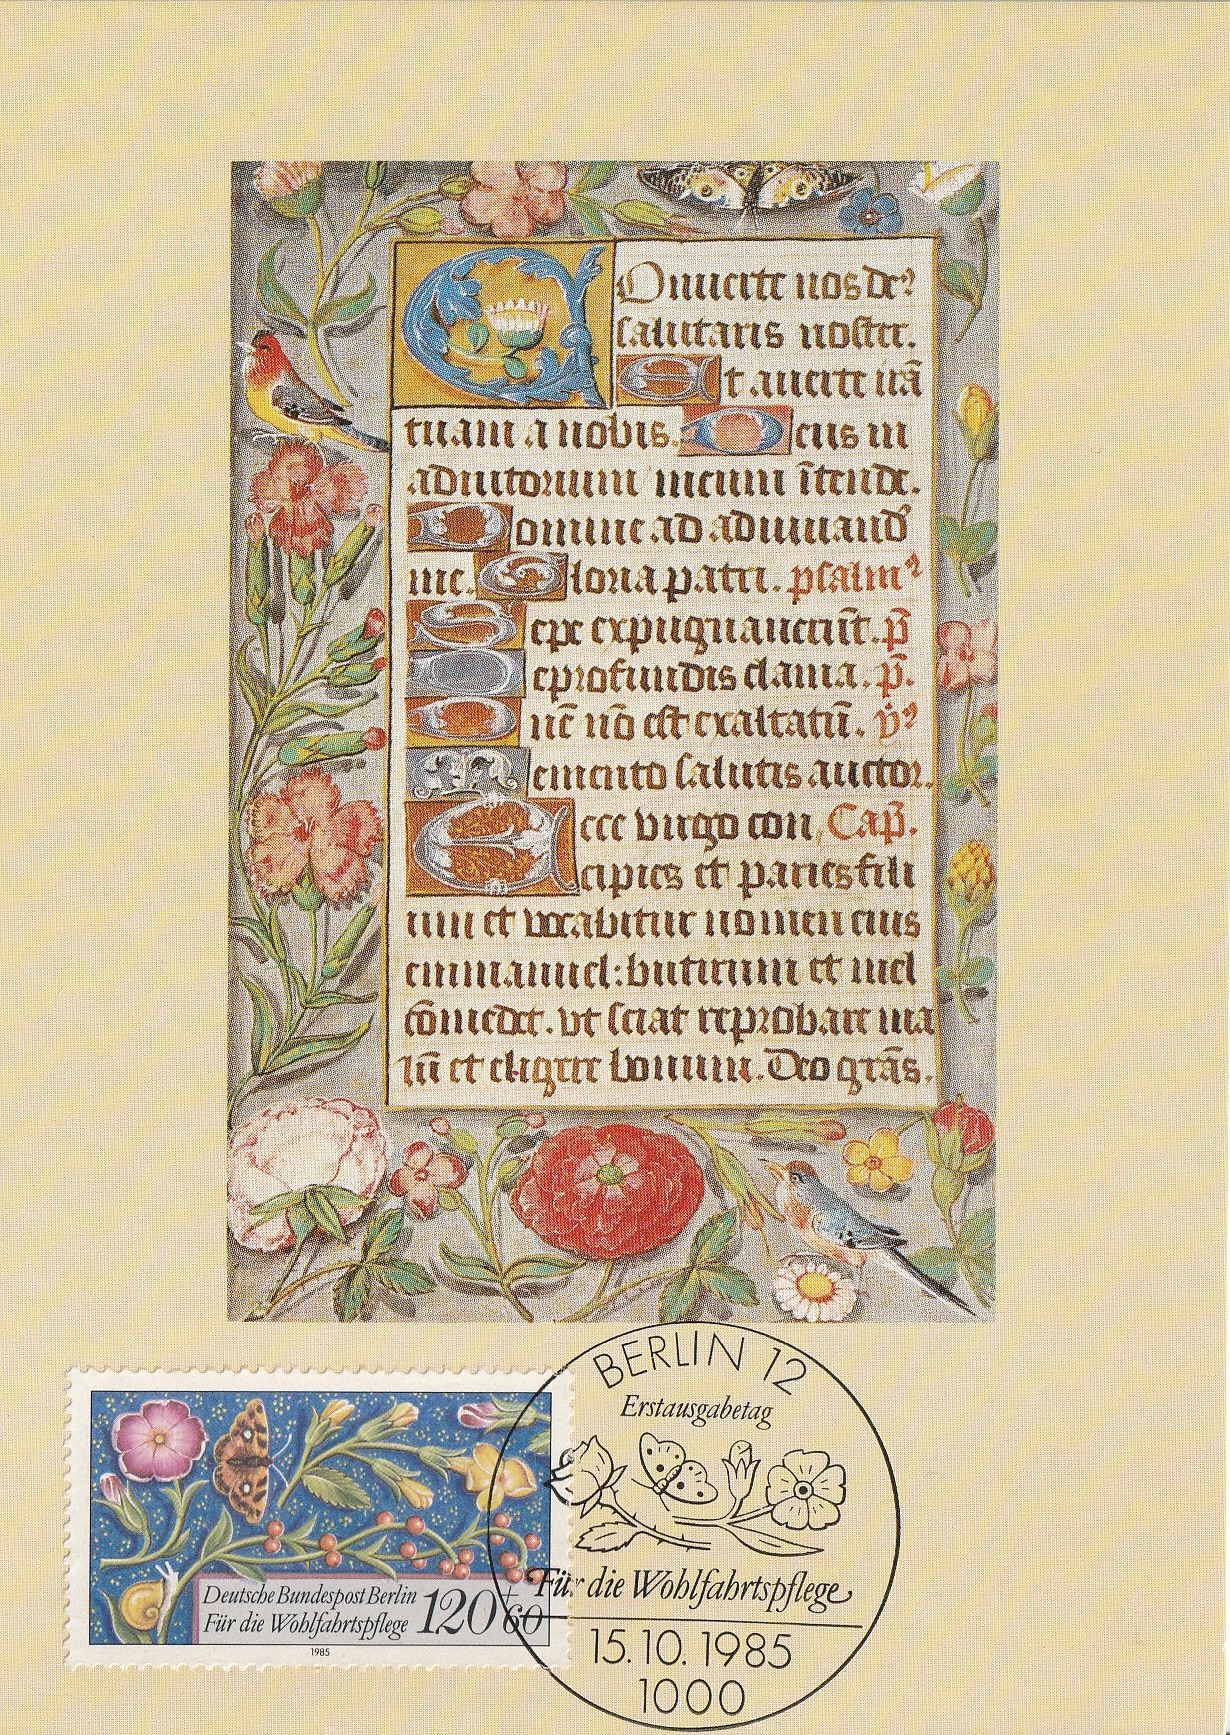 Onuerte nos de⁹
salutaris noster.
Et auerte irã
tuam a nobis. Deus in
adiutorium meum ĩtende.
Domine ad adiuuand
me. Gloria patri. psalm⁹
Sepe expugnauerũt. p̃
De profundis clama. p̃.
Dñe nõ est exaltatũ. ỹ⁹
Memento salutis auctor.
Ecce virgo con Cap̃.
cipies et paries fili
um et vocabitur nomen eius
emmanuel: butirum et mel
cõmedet. vt sciat reprobare ma
lũ et eligere bonum. Deo grãs.
Deutsche Bundespost Berlin
Für die Wohlfahrtspflege 120+60
1985
BERLIN 12
Erstausgabetag
Für die Wohlfahrtspflege
15.10.1985
1000